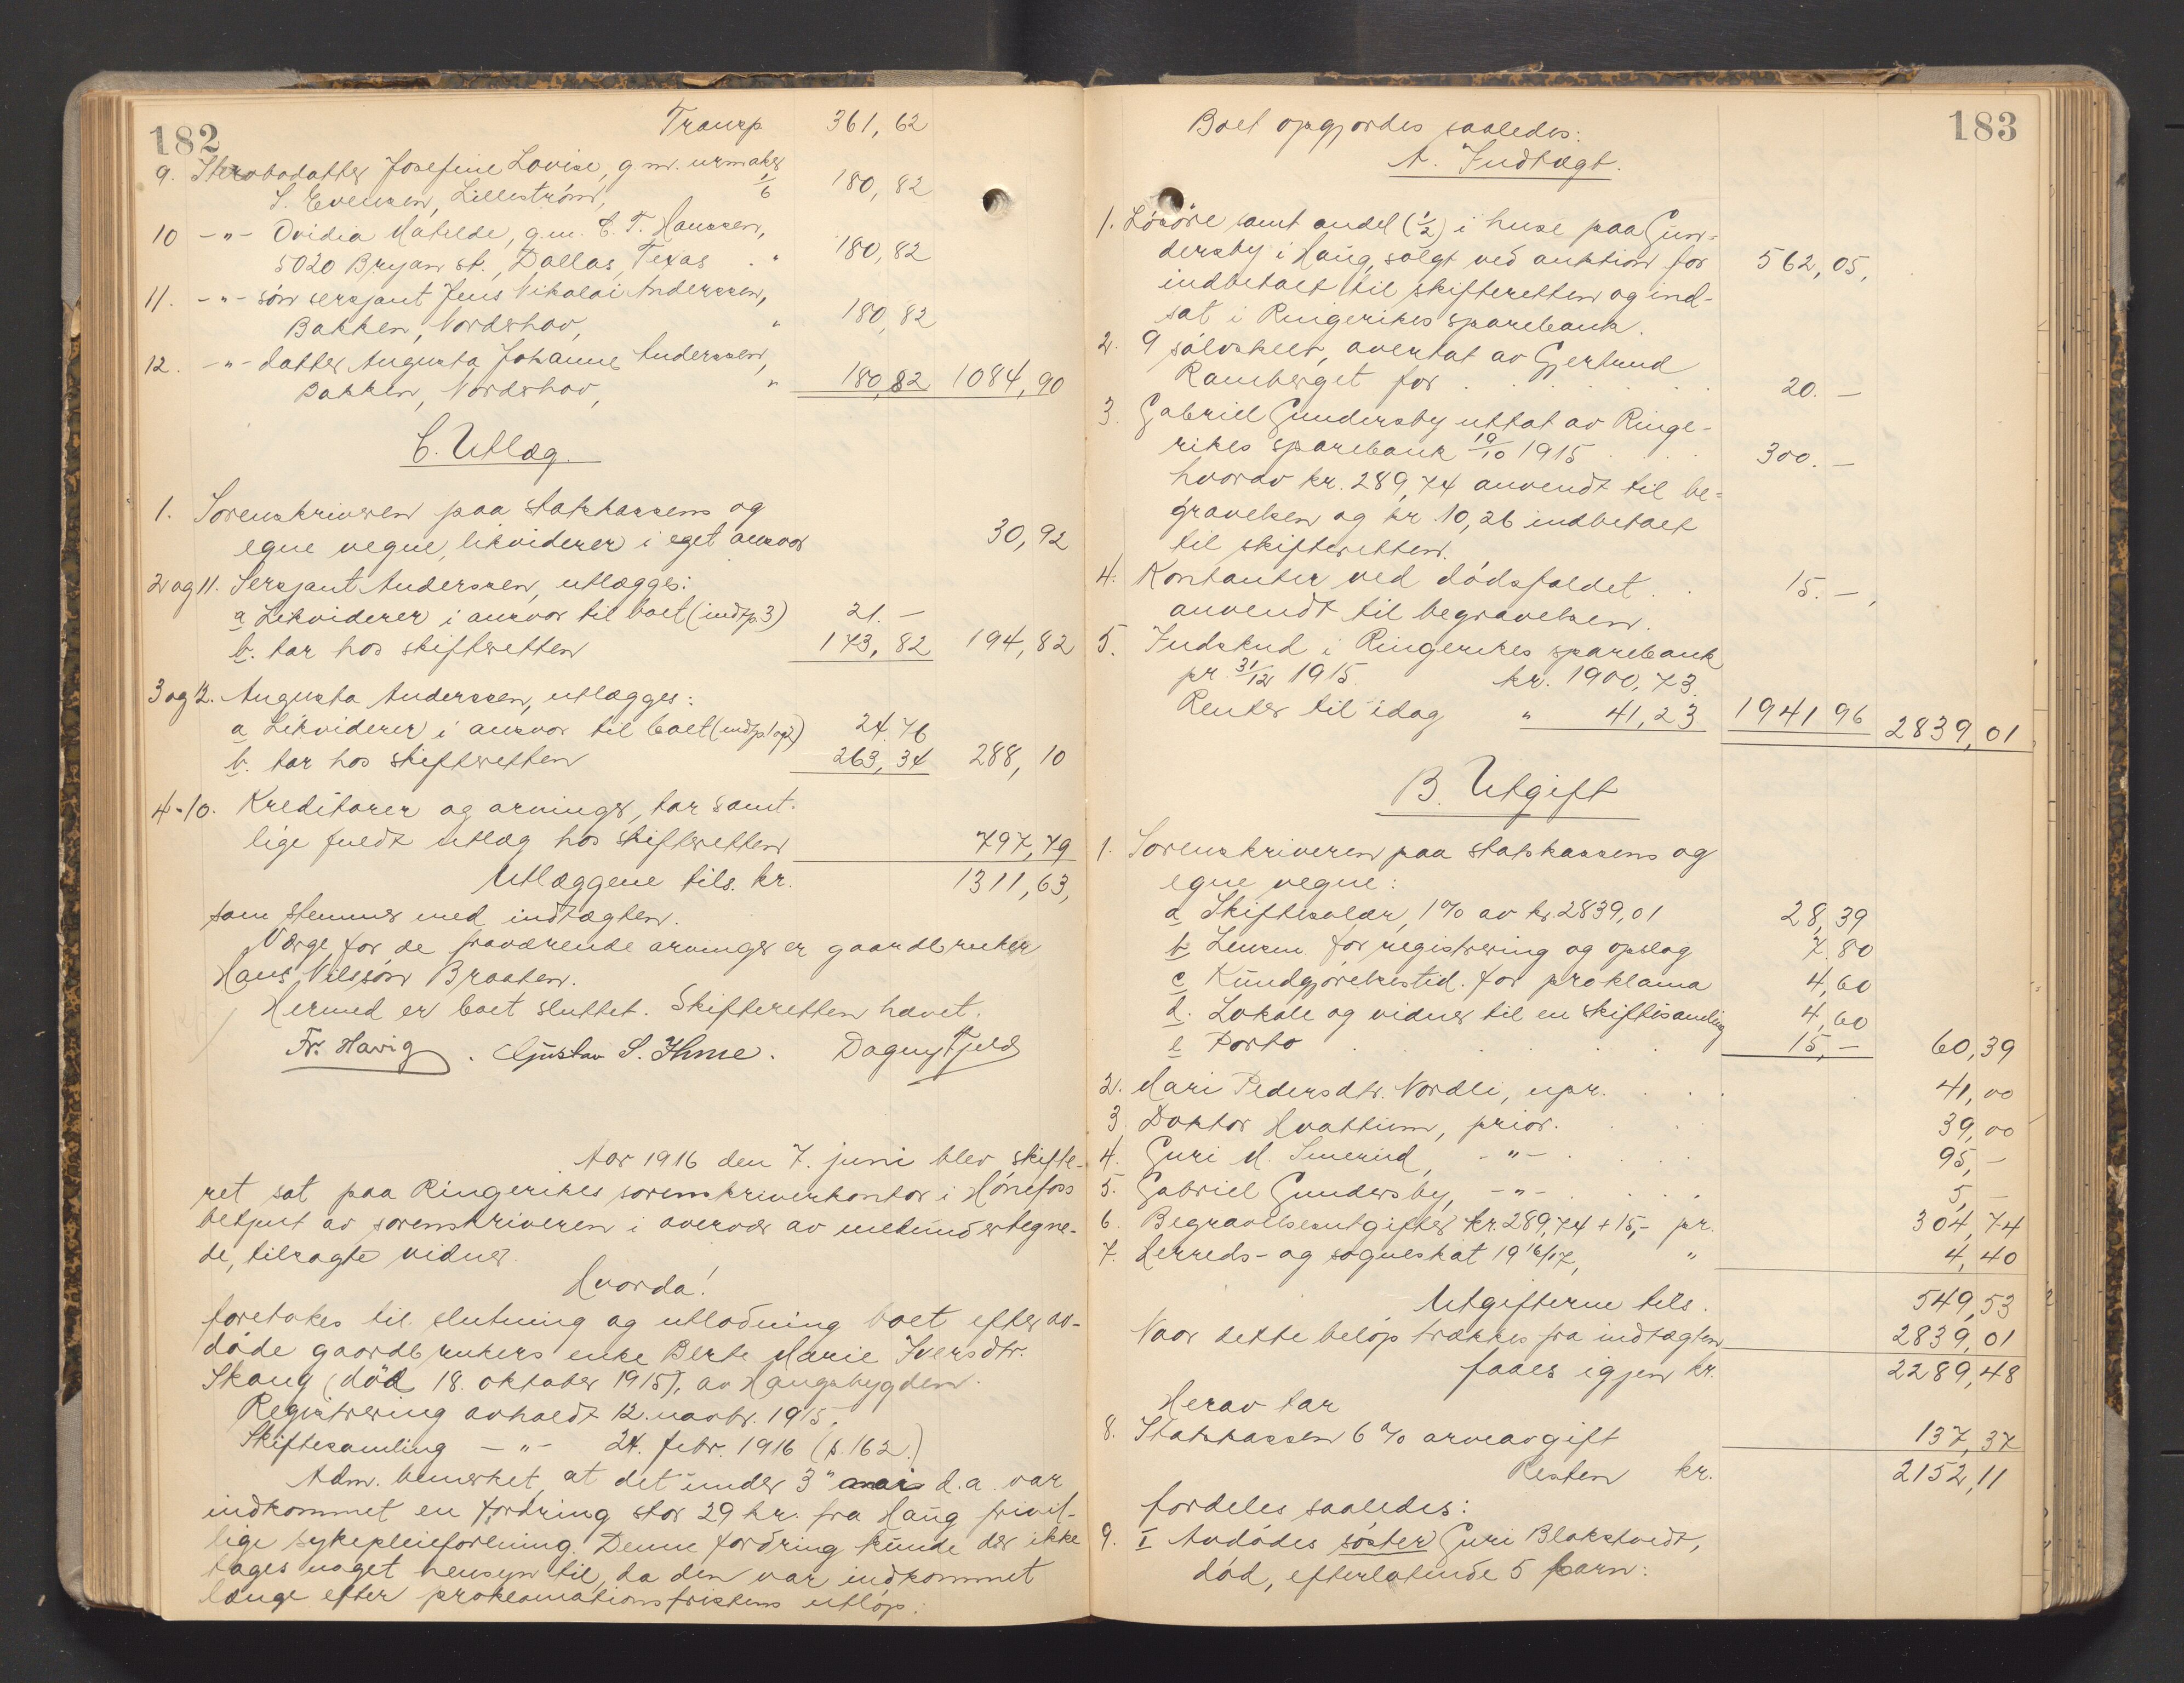 182
Transp 361,62
9. Sterbodatter Josefine Lovise, g.m. urmaker
S. Evensen, Lillestrøm, 1/6 180,82
10 -"- Ovidia Matilde, g.m. C. T. Hanssen,
5020 Bryan st., Dallas, Texas " 180,82
11. -"- søn sersjant Jens Nikolai Anderssen,
Bakken, Norderhov, " 180,82
12. -"- datter Augusta Johanne Anderssen,
Bakken, Norderhov, " 180,82 1084,90
C. Utlæg.
1. Sorenskriveren paa statskassens og
egne vegne, likviderer i eget ansvar 30,92
2 og 11. Sersjant Anderssen, utlægges:
a Likviderer i ansvar til boet (indt.p.3) 21.-
b. tar hos skifteretten 173,82 194,82
3 og 12. Augusta Anderssen, utlægges:
a Likviderer i ansvar til boet (indt.p.1 og 2) 24,76
b. tar hos skifteretten 263,34 288,10
4-10. Kreditorer og arvinger, tar samt-
lige fuldt utlæg hos skifteretten 797,79
Utlæggene tils. kr. 1311,63,
som stemmer med indtægten.
Verge for de fraværende arvinger er gaardbruker
Hans Nilssøn Braaten.
Hermed er boet sluttet. Skifteretten hævet.
Fr. Havig. Gustav S. Ihme. Dagny Fjeld
Aar 1916 den 7. juni blev skifte-
ret sat paa Ringerikes sorenskriverkontor i Hønefoss
betjent av sorenskriveren i overvær av medundertegne-
de, tilsagte vidner.
Hvorda!
foretakes til slutning og utlodning boet efter av-
døde gaardbrukers enke Berte Marie Iversdtr.
Skaug (død 18. oktober 1915), av Haugsbygden.
Registrering avholdt 12. novbr. 1915.
Skiftesamling -"- 24. febr. 1916 (p. 162.)
Adm. bemerket, at det under 3" mai d.a. var
indkommet en fordring stor 29 kr. fra Haug frivil-
lige sykepleieforening. Denne fordring kunde der ikke
tages noget hensyn til, da den var indkommet
længe efter proklamationsfristens utløp.
183
Boet opgjordes saaledes:
A. Indtægt.
1. Løsøre samt andel (1/2) i huse paa Gun-
dersby i Haug, solgt ved auktion for 562,05,
indbetalt til skifteretten og ind-
sat i Ringerikes sparebank.
2. 9 sølvskeer, overtat av Gjertrud
Ramberget for . . . . . 20.-
3. Gabriel Gundersby uttat av Ringe-
rikes sparebank 19/10 1915 . . . 300.-
hvorav kr. 289,74 anvendt til be-
gravelsen og kr. 10,26 indbetalt
til skifteretten.
4. Kontanter ved dødsfaldet . . 15.-,
anvendt til begravelsen.
5. Indskud i Ringerikes sparebank
pr. 31/12 1915. kr. 1900,73.
Renter til idag " 41,23 1941 96 2839,01
B. Utgift
1. Sorenskriveren paa statskassens og
egne vegne:
a Skiftesalær, 1% av kr. 2839,01 28,39
b Lensm. for registrering og opslag 7,80
c Kundgjørelsestid. for proklama 4,60
d. Lokale og vidner til en skiftesamling 4,60
e Porto . . . . 15,- 60,39
2. Mari Pedersdtr. Nordli, upr. . . . 41,00
3. Doktor Hvattum, prior. . . . 39,00
4. Guri M. Smerud, -"- . . . 95,-
5. Gabriel Gundersby, -"- . . . . 5,-
6. Begravelsesutgifter kr. 289,74 + 15,- pr. 304,74
7. Herreds- og sogneskat 1916/17, " 4,40
Utgifterne tils. 549,53
Naar dette beløp trækkes fra indtægten 2839,01
faaes igjen kr. 2289,48
Herav tar
8. Statskassen 6% arveavgift 137,37
Resten kr. 2152,11
fordeles saaledes:
9. I Avdødes søster Guri Blakstvedt,
død, efterlatende 5 barn: